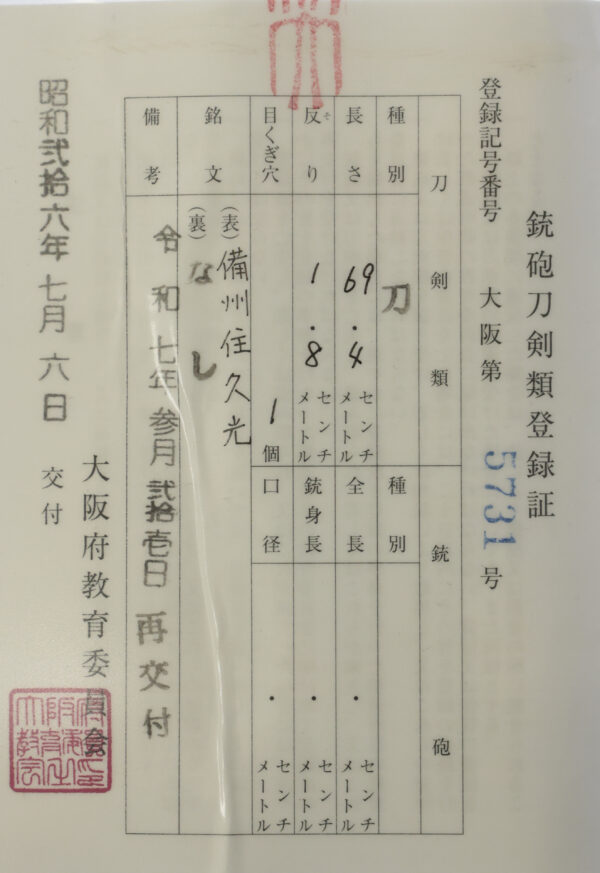 銃砲刀剣類登録証
登録記号番号 大阪第 5731 号
刀剣類
種別 刀
長さ 69.4 センチメートル
反り 1.8 センチメートル
そ
目くぎ穴 1 個
銃砲
種別
全長 ・ センチメートル
銃身長 ・ センチメートル
口径 ・ センチメートル
銘文 (表) 備州住久光
(裏) なし
備考 令和七年参月弐拾壱日再交付
昭和弐拾六年七月六日 交付
大阪府教育委員会